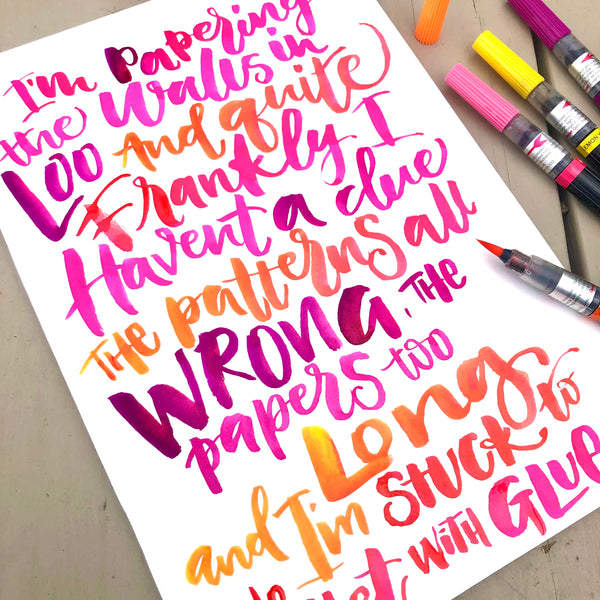 I'm Papering
the Walls in
Loo And quite
Frankly I
Havent a clue
The patterns all
WRONG, The
papers too
Long
and I'm Stuck to
with Glue